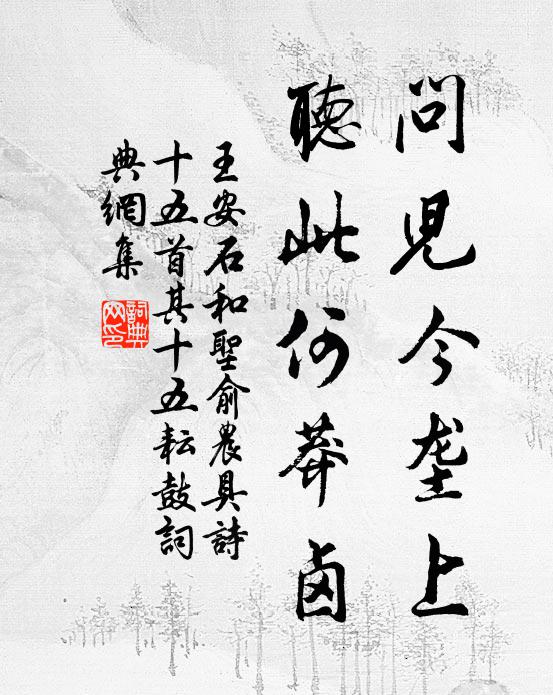 問兒今垄上
聽此何莽卤
王安石和聖俞農具詩
十五首其十五耘鼓詞
典網集
詞典网印